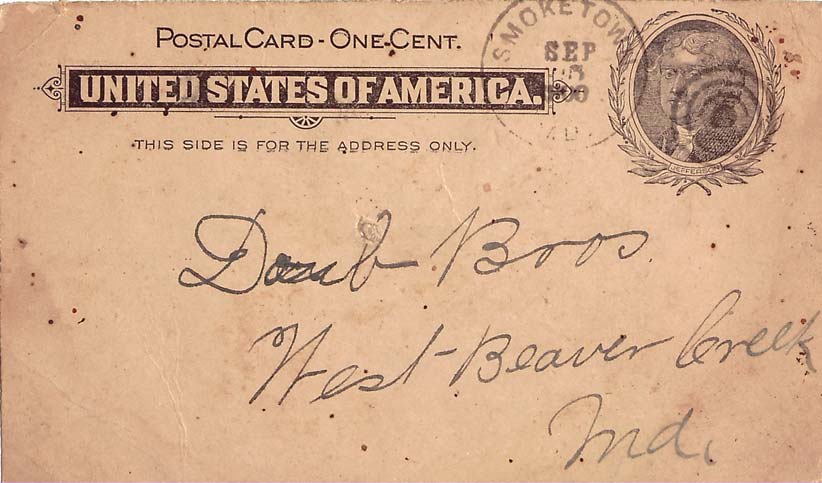 POSTAL CARD - ONE-CENT.
UNITED STATES OF AMERICA.
THIS SIDE IS FOR THE ADDRESS ONLY.
SMOKETOWN
SEP
JEFFERSON
Doub Bros.
West-Beaver Creek
Md.